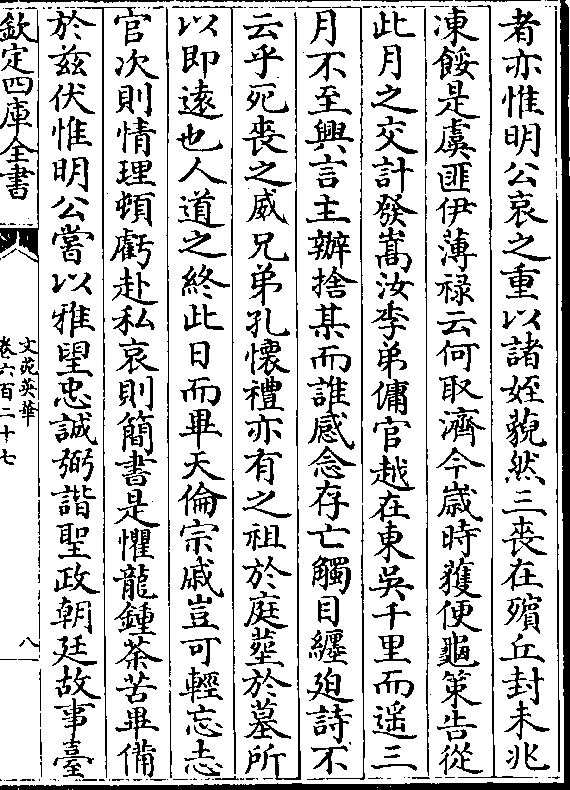 者亦惟明公哀之重以諸姪藐然三喪在殯丘封未兆
凍餒是虞匪伊薄禄云何取濟今嵗時獲便龜策告從
此月之交計發嵩汝李弟傭官越在東吳千里而遥三
月不至興言主辦捨某而誰感念存亡觸目纒廹詩不
云乎死喪之威兄弟孔懷禮亦有之祖於庭塟於墓所
以即逺也人道之終此日而畢天倫宗戚豈可輕忘志
官次則情理頓虧赴私哀則簡書是懼龍鍾荼苦畢備
於兹伏惟明公嘗以雅望忠誠弼諧聖政朝廷故事臺
欽定四庫全書
文苑英華
卷六百二十七
八